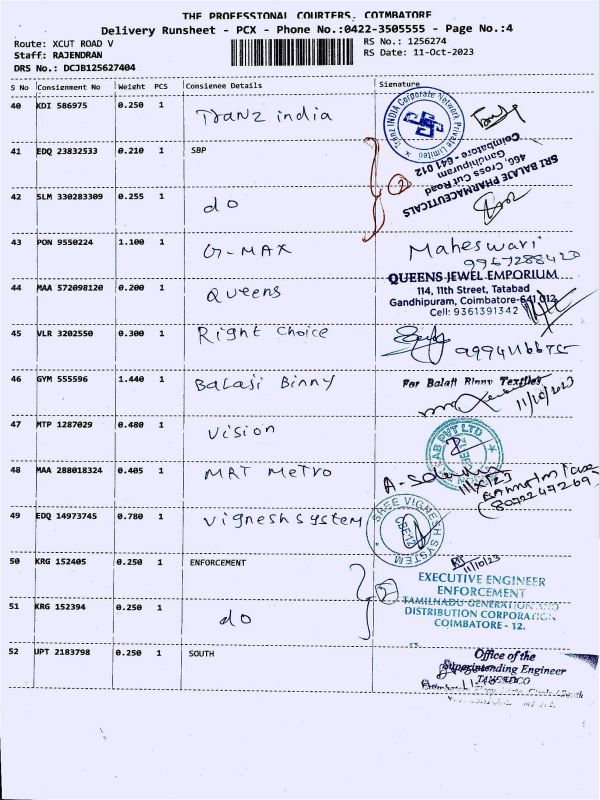 THE PROFESSIONAL COURIERS, COIMBATORE
Delivery Runsheet - PCX - Phone No.:0422-3505555 - Page No.:4
Route: XCUT ROAD V
Staff: RAJENDRAN
DRS No.: DCJB125627404
RS No.: 1256274
RS Date: 11-Oct-2023
S No Consignment No Weight PCS Consienee Details Signature
40 KDI 586975 0.250 1 Tranz india
Tranz INDIA Corporate Network Private Limited
Coimbatore - 641 012
41 EDQ 23832533 0.210 1 SBP
SRI BALAJE PHARMACEUTICALS
466, Cross Cut Road
Gandhipuram
Coimbatore - 641 012
2
42 SLM 330283309 0.255 1 do
43 PON 9550224 1.100 1 G-MAX
Maheswari
44 MAA 572098120 0.200 1 Queens
QUEENS JEWEL EMPORIUM
114, 11th Street, Tatabad
Gandhipuram, Coimbatore-641 012
Cell: 9361391342
45 VLR 3202550 0.300 1 Right Choice
46 GYM 555596 1.440 1 Balaji Binny
For Balaji Binny Textiles
11/10/2023
47 MTP 1287029 0.480 1 Vision
48 MAA 288018324 0.405 1 MRT Metro
49 EDQ 14973745 0.780 1 Vignesh system
SREE VIGNESH SYSTEM
50 KRG 152405 0.250 1 ENFORCEMENT
11/10/23
EXECUTIVE ENGINEER
ENFORCEMENT
TAMILNADU GENERATION AND
DISTRIBUTION CORPORATION
COIMBATORE - 12.
51 KRG 152394 0.250 1 do
52 UPT 2183798 0.250 1 SOUTH
Office of the
Superintending Engineer
TANGEDCO